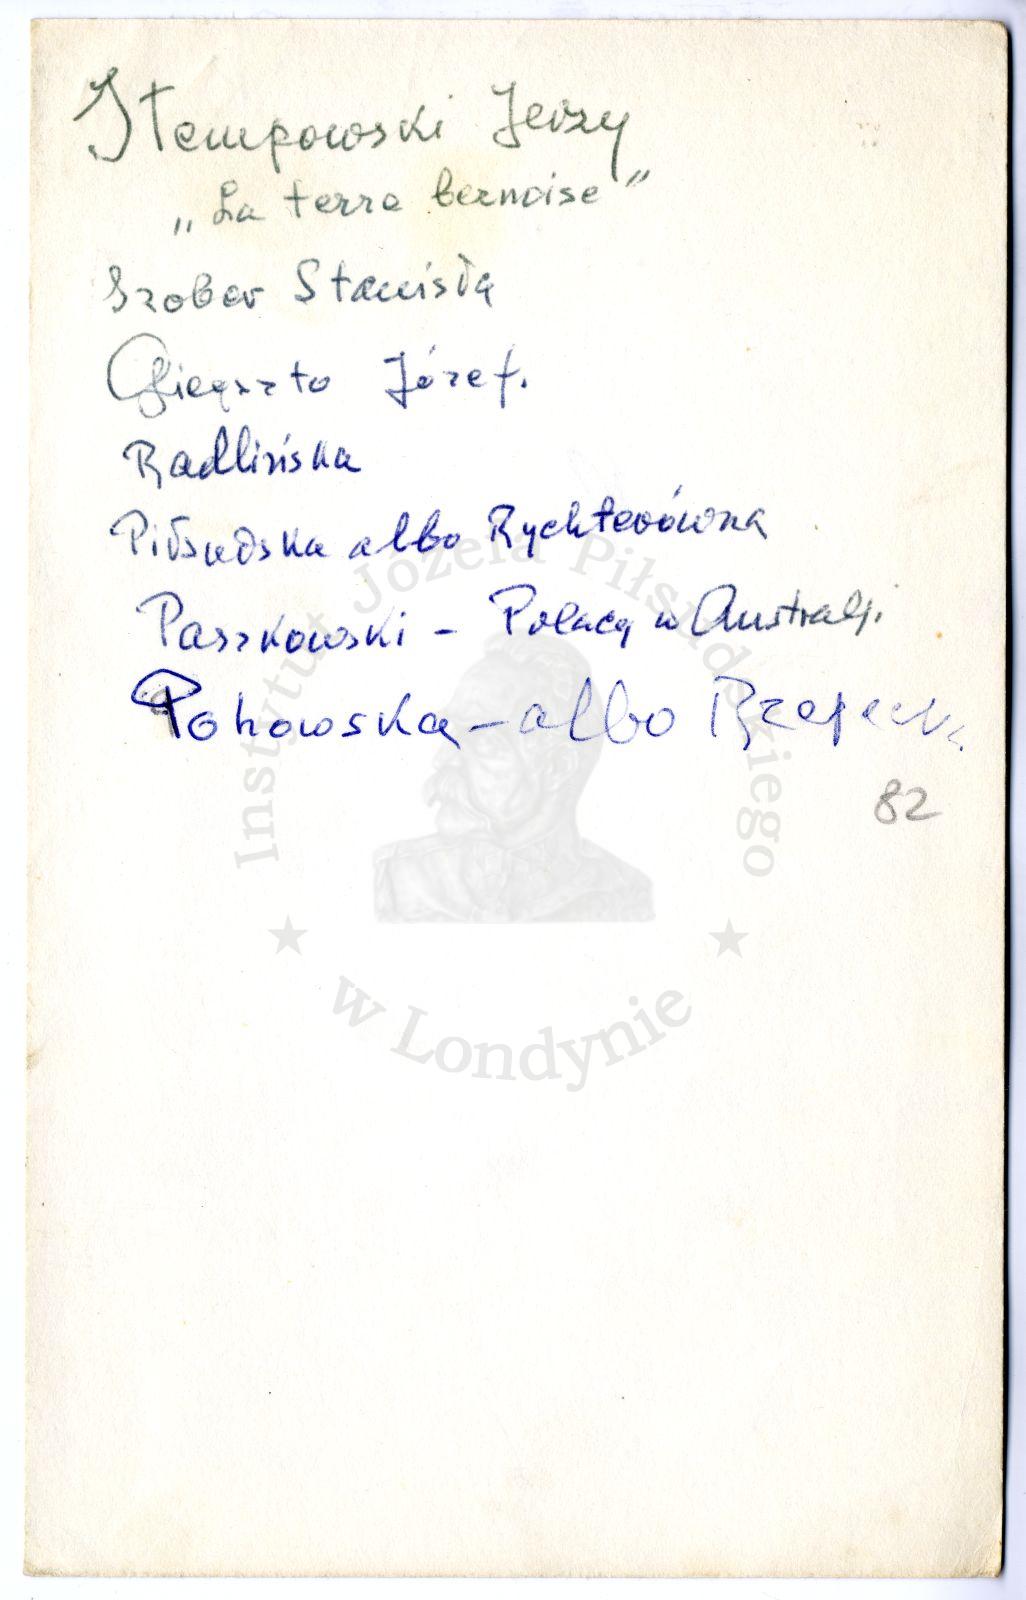 Stempowski Jerzy
„La terre bernoise”
Szober Stanisła
Giegszto Józef.
Radlińska
Piłsudska albo Rychterówna
Paszkowski – Polacy w Australji
Pohowska – albo
82
Instytut Józefa Piłsudskiego
w Londynie